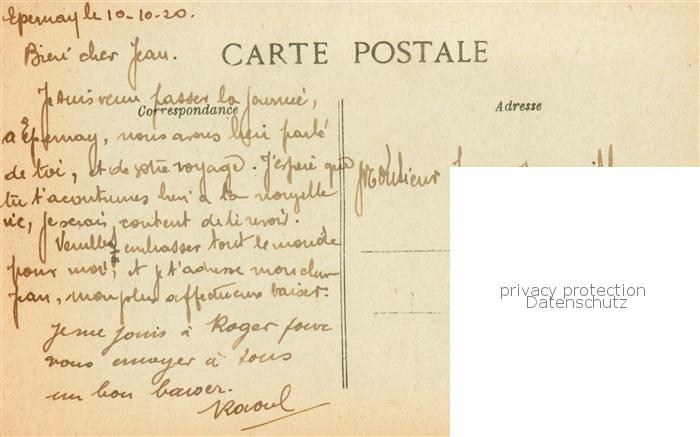 Epernay le 10-10-20.
Bien cher Jean.
CARTE POSTALE
Correspondance
Adresse
Je suis venu passer la journée,
a Epernay, nous avons bien parlé
de toi, et de votre voyage. J'espère que
tu t'acoutumes bien a la nouvelle
vie, je serais content de te revoir.
Veuillez embrasser tout le monde
pour moi, et je t'adresse mon cher
Jean, mon plus affectueux baiser.
Je me joins à Roger pour
vous envoyer à tous
un bon baiser.
Raoul
Monsieur
privacy protection
Datenschutz